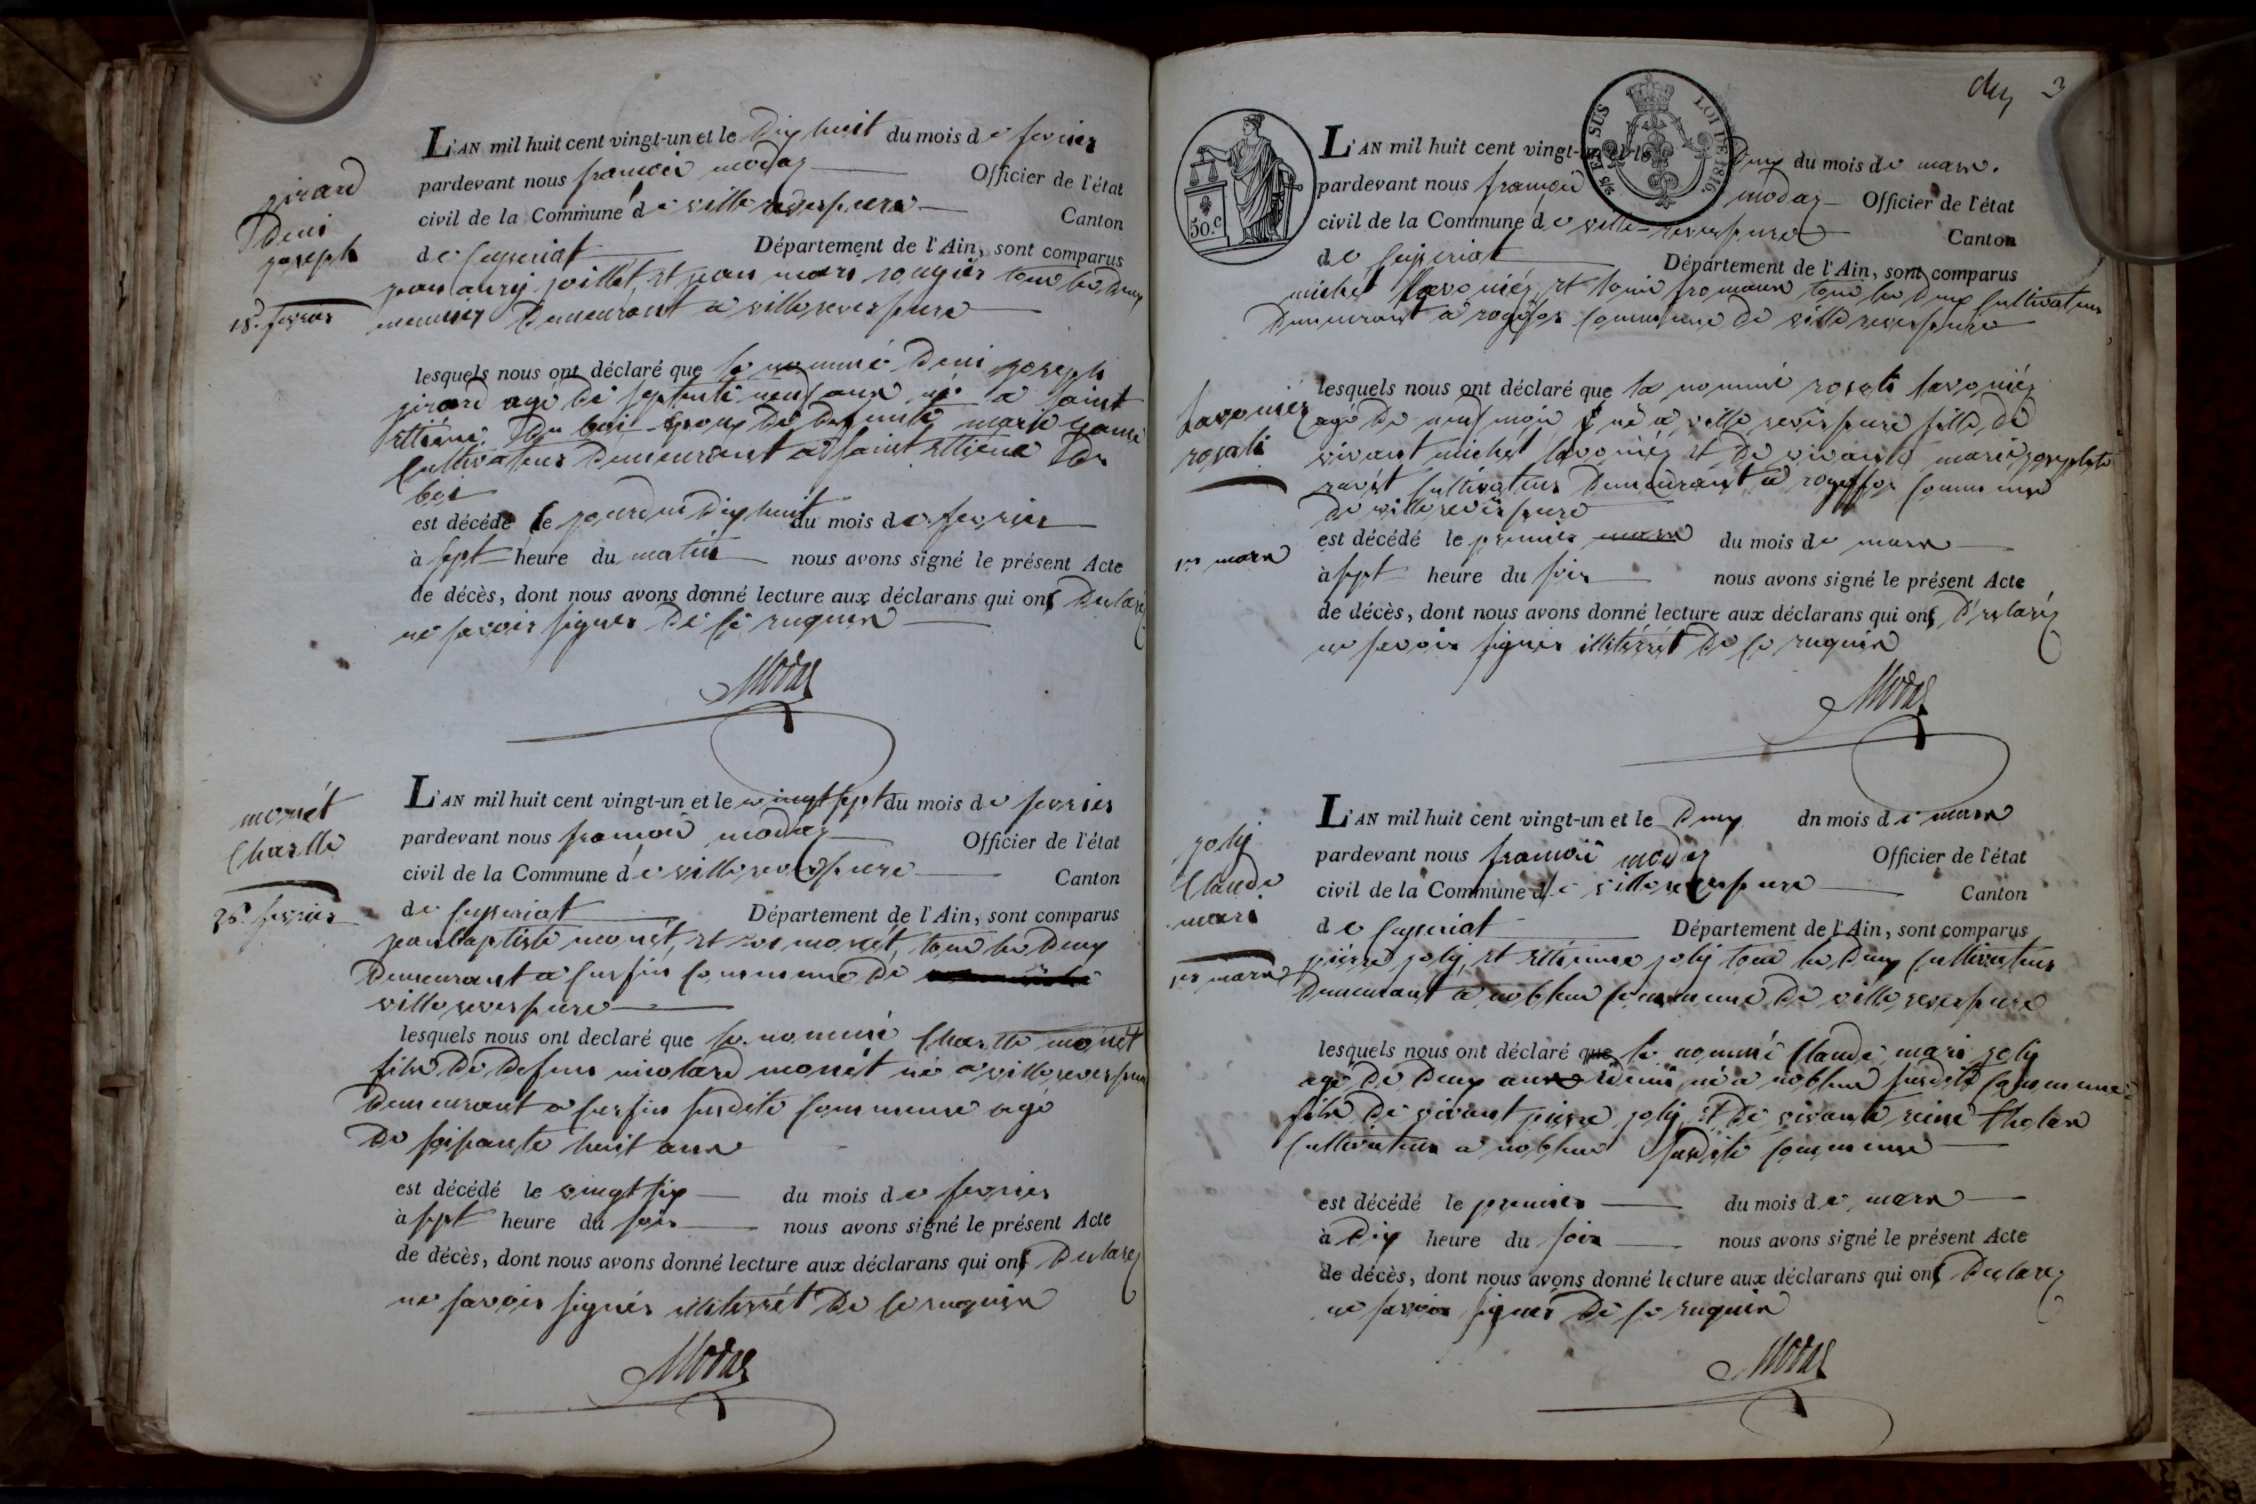 girard
Deni
joseph
18e fevrier
L'AN mil huit cent vingt-un et le Dix huit du mois de fevrier
pardevant nous françois modaz Officier de l'état
civil de la Commune de ville reverseure Canton
de Ceyzeriat Département de l'Ain, sont comparus
joillet, et jean mari rougier tous les Deux
Demeurant a villereversure
lesquels nous ont déclaré que le nommé Deni joseph
girard agé De septante neuf ans né a saint
ettiene Du boi Epoux De Defunte marie
Cultivateur Demeurant a saint ettiene Du
boi
est décédé le jourdui Dix huit du mois de fevrier
à sept heure du matin nous avons signé le présent Acte
de décès, dont nous avons donné lecture aux déclarans qui ont Declaré
ne savoir signer De ce requis
Modas
monét
Charlle
26e fevrier
L'AN mil huit cent vingt-un et le vingt sept du mois de fevrier
pardevant nous françois modaz Officier de l'état
civil de la Commune de villereversure Canton
de Ceyzeriat Département de l'Ain, sont comparus
jean baptiste monét, et monét, tous les Deux
Demeurant a Curfin Commune De
villereversure
lesquels nous ont declaré que le nommé Charlle monét
fils De Defun monét né a villereversure
Demeurant a Curfin susdite Commune agé
De soisante huit ans
est décédé le vingt six du mois de fevrier
à sept heure du soir nous avons signé le présent Acte
de décès, dont nous avons donné lecture aux déclarans qui ont Declaré
ne savoir signér illiterrét De ce requis
Modas
3
50. C
EN SUS
LOI DE 1816.
L'AN mil huit cent vingt-un et le Deux du mois de mars.
pardevant nous françoi modaz Officier de l'état
civil de la Commune de ville-reverseure Canton
de Ceyzeriat Département de l'Ain, sont comparus
michel savoniéz, et louis tous les Deux Cultivateurs
Demeurant a Commune De ville reversure
savoniéz
rosali
1er mars
lesquels nous ont déclaré que la nommé rosali savoniéz
agé De neuf mois né a ville reversure fille De
vivant michel savoniéz et De vivante marie josephte
ravét Cultivateur Demeurant a Commune
De villereversure
est décédé le premier mars du mois de mars
à sept heure du soir nous avons signé le présent Acte
de décès, dont nous avons donné lecture aux déclarans qui ont Déclaréz
ne savoir signer illitérrét De ce requis
Modas
joly
Claude
mari
1er mars
L'AN mil huit cent vingt-un et le Deux dn mois de mars
pardevant nous françoi modaz Officier de l'état
civil de la Commune de villereversure Canton
de Ceyzeriat Département de l'Ain, sont comparus
pierre joly, et ettienne joly tous les Deux Cultivateurs
Demeurant a noblens Commune De ville reversure
lesquels nous ont déclaré que le nommé Claude mari joly
agé De Deux ans né a noblens susdite Commune
fils De vivant pierre joly, et De vivante reine
Cultivateur a noblens susdite Commune
est décédé le premier du mois de mars
à Dix heure du soir nous avons signé le présent Acte
de décès, dont nous avons donné lecture aux déclarans qui ont Declaréz
ne savoir signer De ce requis
Modas